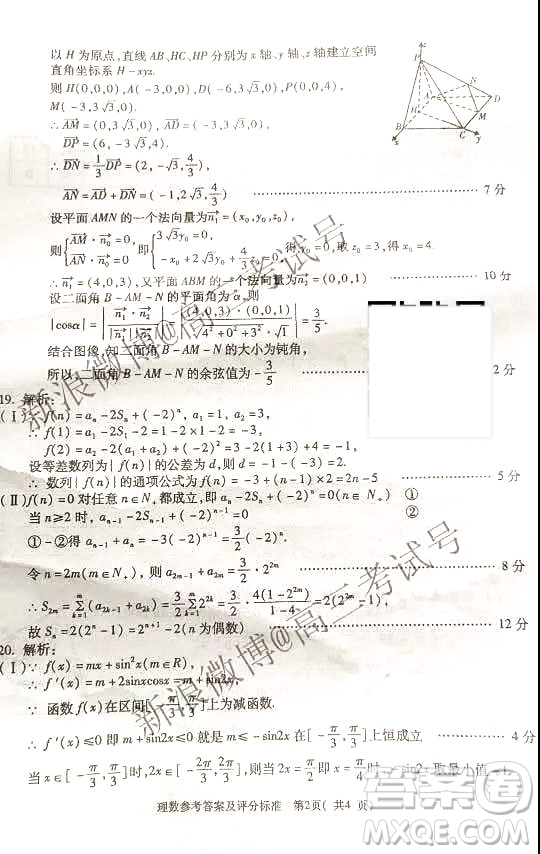 以 H 为原点,直线 AB、HC、HP 分别为 x 轴、y 轴、z 轴建立空间
直角坐标系 H-xyz.
则 H(0,0,0),A(-3,0,0),D(-6,3√3,0),P(0,0,4),
M(-3,3√3,0).
∴ AM→=(0,3√3,0), AD→=(-3,3√3,0),
DP→=(6,-3√3,4).
∴ DN→=1/3 DP→=(2,-√3,4/3),
AN→=AD→+DN→=(-1,2√3,4/3) ………… 7 分
设平面 AMN 的一个法向量为 n₁→=(x₀,y₀,z₀),
则{AM→·n₁→=0, AN→·n₁→=0, 即{3√3y₀=0, -x₀+2√3y₀+4/3z₀=0, 得,y₀=0,取 z₀=3,得 x₀=4.
∴ n₁→=(4,0,3),又平面 ABM 的一个法向量 =(0,0,1) ………… 10 分
设二面角 B-AM-N 的平面角为 α,则
|cosα|=|n₁→· /|n₁→|·| ||=|(4,0,3)·(0,0,1)/√(4²+0²+3²)·√1|=3/5.
结合图像,知二面角 B-AM-N 的大小为钝角,
所以,二面角 B-AM-N 的余弦值为-3/5 2 分
19. 解析:
(Ⅰ)∵ f(n)=aₙ-2Sₙ+(-2)ⁿ, a₁=1, a₂=3,
∴ f(1)=a₁-2S₁-2=1-2×1-2=-3,
f(2)=a₂-2S₂+(-2)²=3-2(1+3)+4=-1.
设等差数列{f(n)}的公差为 d,则 d=-1-(-3)=2
∴ 数列{f(n)}的通项公式为 f(n)=-3+(n-1)×2=2n-5 ………… 5 分
(Ⅱ)f(n)=0 对任意 n∈N₊都成立,即 aₙ-2Sₙ+(-2)ⁿ=0 ①
当 n≥2 时, aₙ₋₁-2Sₙ₋₁+(-2)ⁿ⁻¹=0 ②
①-②得 aₙ+aₙ₋₁=-3(-2)ⁿ⁻¹=3/2(-2)ⁿ.
令 n=2m(m∈N₊),则 a₂ₘ₋₁+a₂ₘ=3/2·2²ᵐ. ………… 8 分
∴ S₂ₘ=∑(k=1→m)(a₂ₖ₋₁+a₂ₖ)=3/2∑(k=1→m)2²ᵏ=3/2·4(1-2²ᵐ)/(1-4)=2(2²ᵐ-1).
故 Sₙ=2(2ⁿ-1)=2ⁿ⁺¹-2(n 为偶数) ………… 12 分
20. 解析:
(Ⅰ)∵ f(x)=mx+sin²x(m∈R),
∴ f′(x)=m+2sinxcosx=m+sin2x,
∵ 函数 f(x)在区间[-π/3,π/3]上为减函数,
∴ f′(x)≤0 即 m+sin2x≤0 就是 m≤-sin2x 在[-π/3,π/3]上恒成立 ………… 4 分
当 x∈[-π/3,π/3]时, 2x∈[-2π/3,2π/3], ∴ -sin2x 取最小值-1,
理数参考答案及评分标准 第2页(共4 页)
z
P
N
A
D
H
M
B
C
x
y
新浪微博@高三考试号
新浪微博@高三考试号